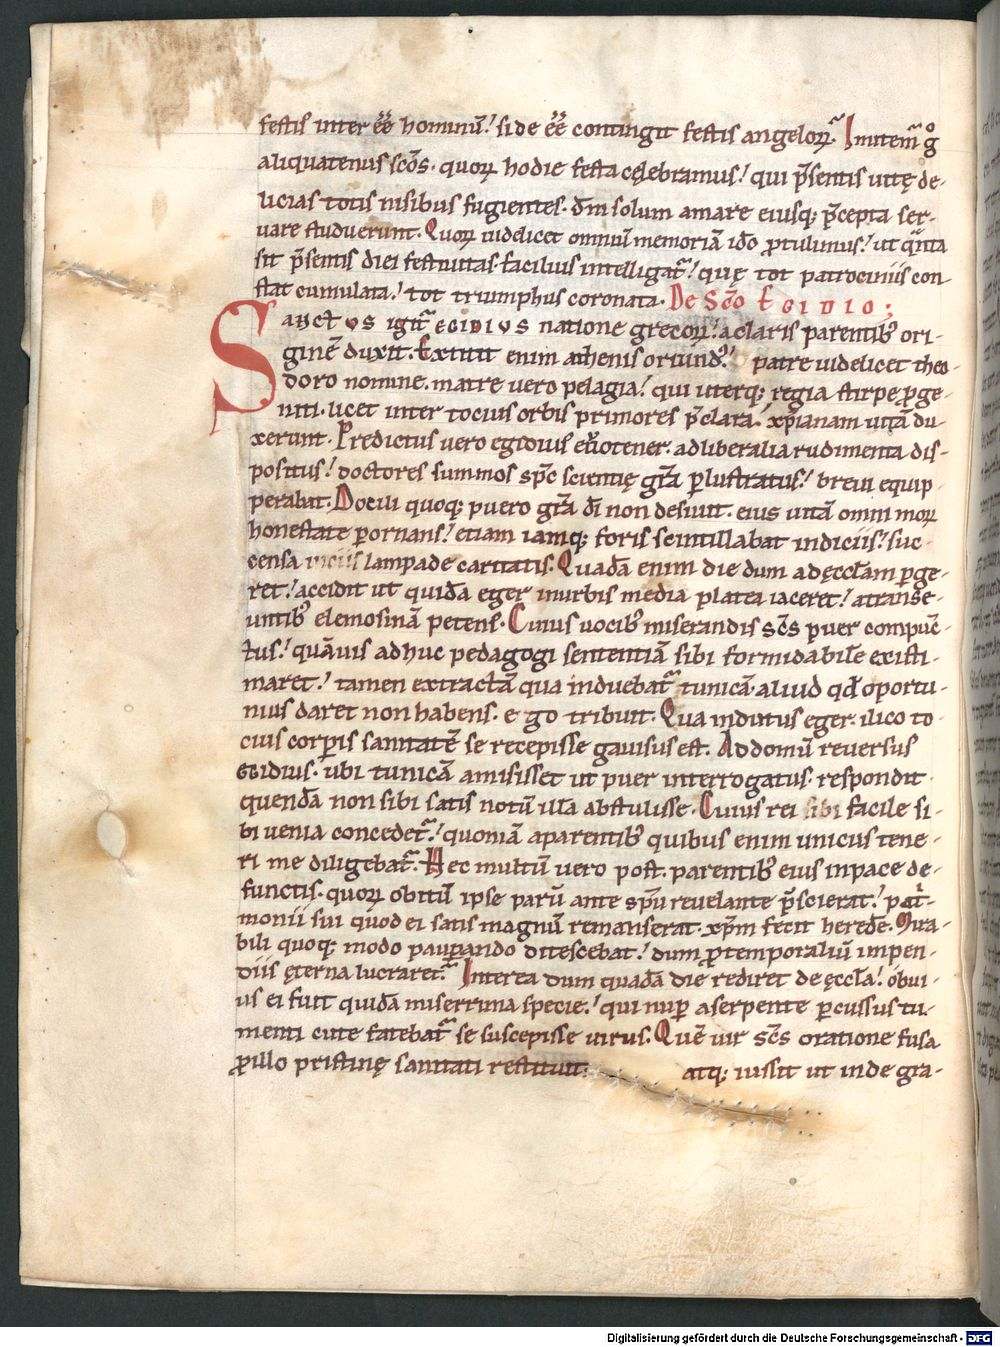 festis inter ēē hominū! si de ēē contingit festis angeloꝝ. Imitem̄ gͦ
aliquatenus sc̄os. quoꝝ hodie festa celebramus! qui p̄sentis uitę de-
licias totis nisibus fugientes. dm̄ solum amare eiusq; p̄cepta ser-
uare studuerunt. Quoꝝ uidelicet omniū memoriā idō ꝓtulimus! ut q̄nta
sit p̄sentis diei festiuitas facilius intelligat᷑! quę tot patrociniis con
stat cumulata! tot triumphis coronata. De Sc̄o Egidio;
Sanctus igit᷑ egidius natione grecoꝝ! a claris parentib; ori-
ginē duxit. Extitit enim athenis oriund9! patre uidelicet theo-
doro nomine. matre uero pelagia! qui uterq; regia stirpe ꝓge-
niti. licet inter tocius orbis primores p̄clara! xp̄ianam uitā du-
xerunt. Predictus uero egidius tener. ad liberalia rudimenta dis-
positus! doctores summos sp̄c scientię gr̄a ꝑlustratus! breui equip-
perabat. Docili quoq; puero gr̄a dī non desiuit. eius uitā omni moꝝ
honestate ꝑornans! etiam iamq; foris scintillabat indiciis! suc-
censa lampade caritatis. Quadā enim die dum ad ęccl̄am ꝑge-
ret! accidit ut quidā eger in urbis media platea iaceret! a transe-
untib; elemosinā petens. Cuius uocib; miserandis sc̄s puer compūc-
tus! quāuis adhuc pedagogi sententiā sibi formidabilē existi-
maret! tamen extractā qua induebat᷑ tunicā. aliud qd̄ oportu-
nius daret non habens. egͦo tribuit. Qua indutus eger. ilico to-
cius corꝑis sanitatē se recepisse gauisus est. Ad domū reuersus
egidius. ubi tunicā amisisset ut puer interrogatus. respondit
quendā non sibi satis notū illā abstulisse. Cuius rei sibi facile si-
bi uenia concedet᷑! quoniā a parentib; quibus enim unicus tene-
ri me diligebat᷑. Hec multū uero post. parentib; eius in pace de-
functis. quoꝝ obitū ipse parū ante sp̄u reuelante p̄scierat! pat᷑-
monii sui quod ei satis magnū remanserat. xp̄m fecit heredē. Mira-
bili quoq; modo pauꝑando ditescebat! dum ꝓ temporaliū inpen-
diis ęterna lucraret᷑. Interea dum quadā die rediret de ęccl̄a! obui-
us ei fuit quidā miserrima specie! qui nuꝑ a serpente ꝑcussus tu-
menti cute fatebat᷑ se suscepisse uirus. Quē uir sc̄s oratione fusa
ꝓ illo pristinę sanitati restituit. atq; iussit ut inde gra-
Digitalisierung gefördert durch die Deutsche Forschungsgemeinschaft - DFG